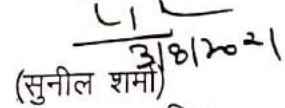 3/8/2021
(सुनील शर्मा)